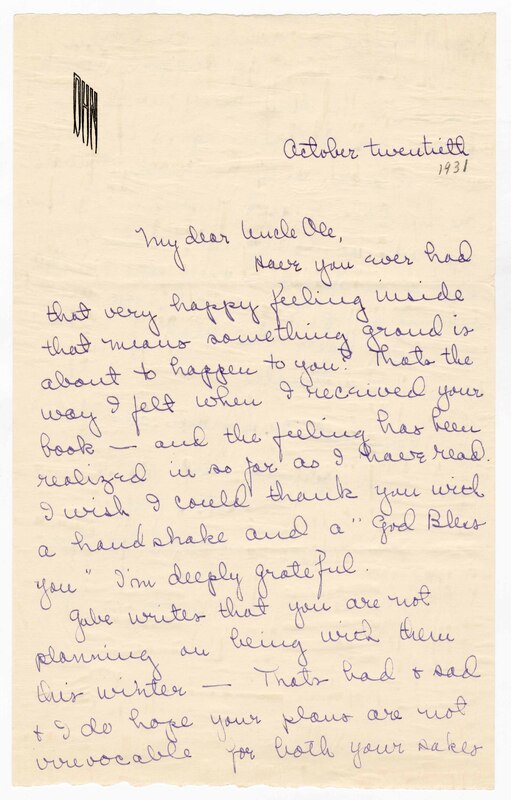 DHN
October twentieth
1931
My dear Uncle Ole,
Have you ever had
that very happy feeling inside
that means something grand is
about to happen to you? Thats the
way I felt when I received your
book — and the feeling has been
realized in so far as I have read.
I wish I could thank you with
a handshake and a "God Bless
you" I'm deeply grateful.
Gube writes that you are not
planning on being with them
this winter — Thats bad & sad
& I do hope your plans are not
irrevocable for both your sakes